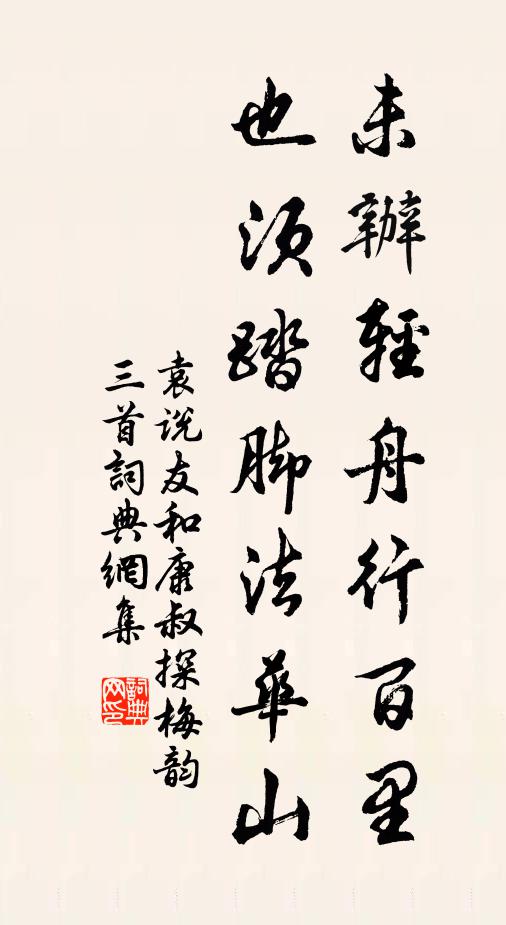 未辦輕舟行百里
也須踏脚法華山
袁说友和康叔探梅韵
三首詞典網集
詞典网印